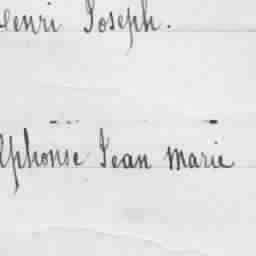 Henri Joseph.
Alphonse Jean Marie